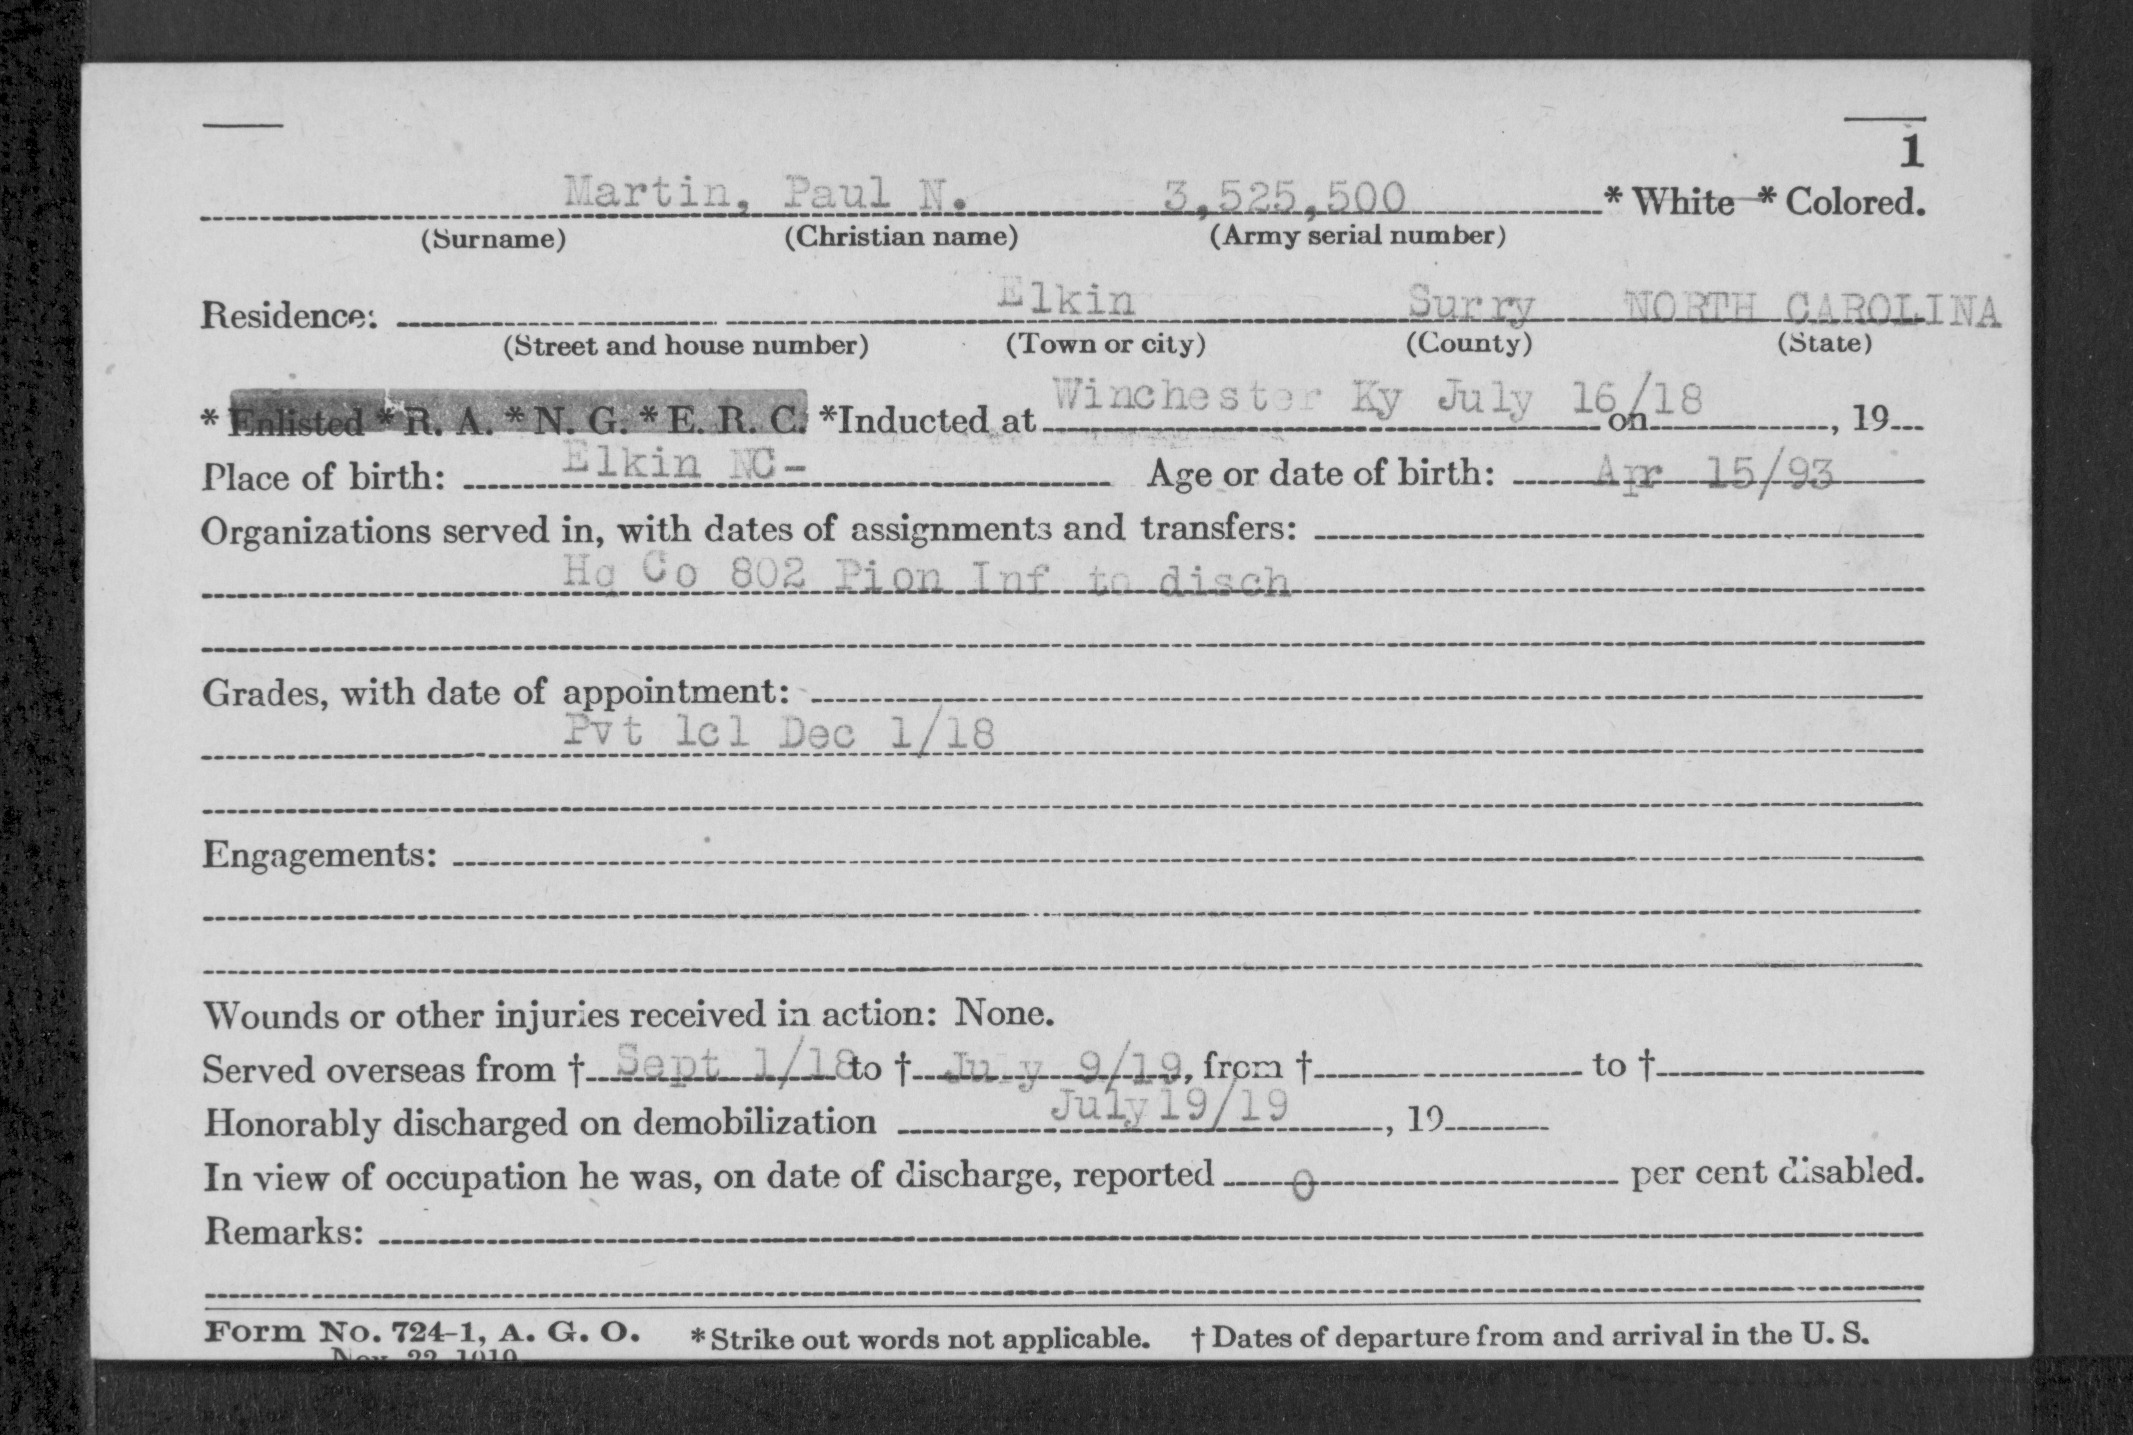 1
Martin, Paul N. 3,525,500 * White * Colored.
(Surname) (Christian name) (Army serial number)
Elkin Surry NORTH CAROLINA
Residence:
(Street and house number) (Town or city) (County) (State)
Winchester Ky July 16/18
* Enlisted * R. A. * N. G. * E. R. C. *Inducted at on , 19
Place of birth: Elkin NC- Age or date of birth: Apr 15/93
Organizations served in, with dates of assignments and transfers:
Hq Co 802 Pion Inf to disch
Grades, with date of appointment:
Pvt 1cl Dec 1/18
Engagements:
Wounds or other injuries received in action: None.
Served overseas from † Sept 1/18 to † July 9/19, from † to †
Honorably discharged on demobilization July 19/19 , 19
In view of occupation he was, on date of discharge, reported 0 per cent disabled.
Remarks:
Form No. 724-1, A. G. O. * Strike out words not applicable. † Dates of departure from and arrival in the U. S.
Nov. 22, 1919